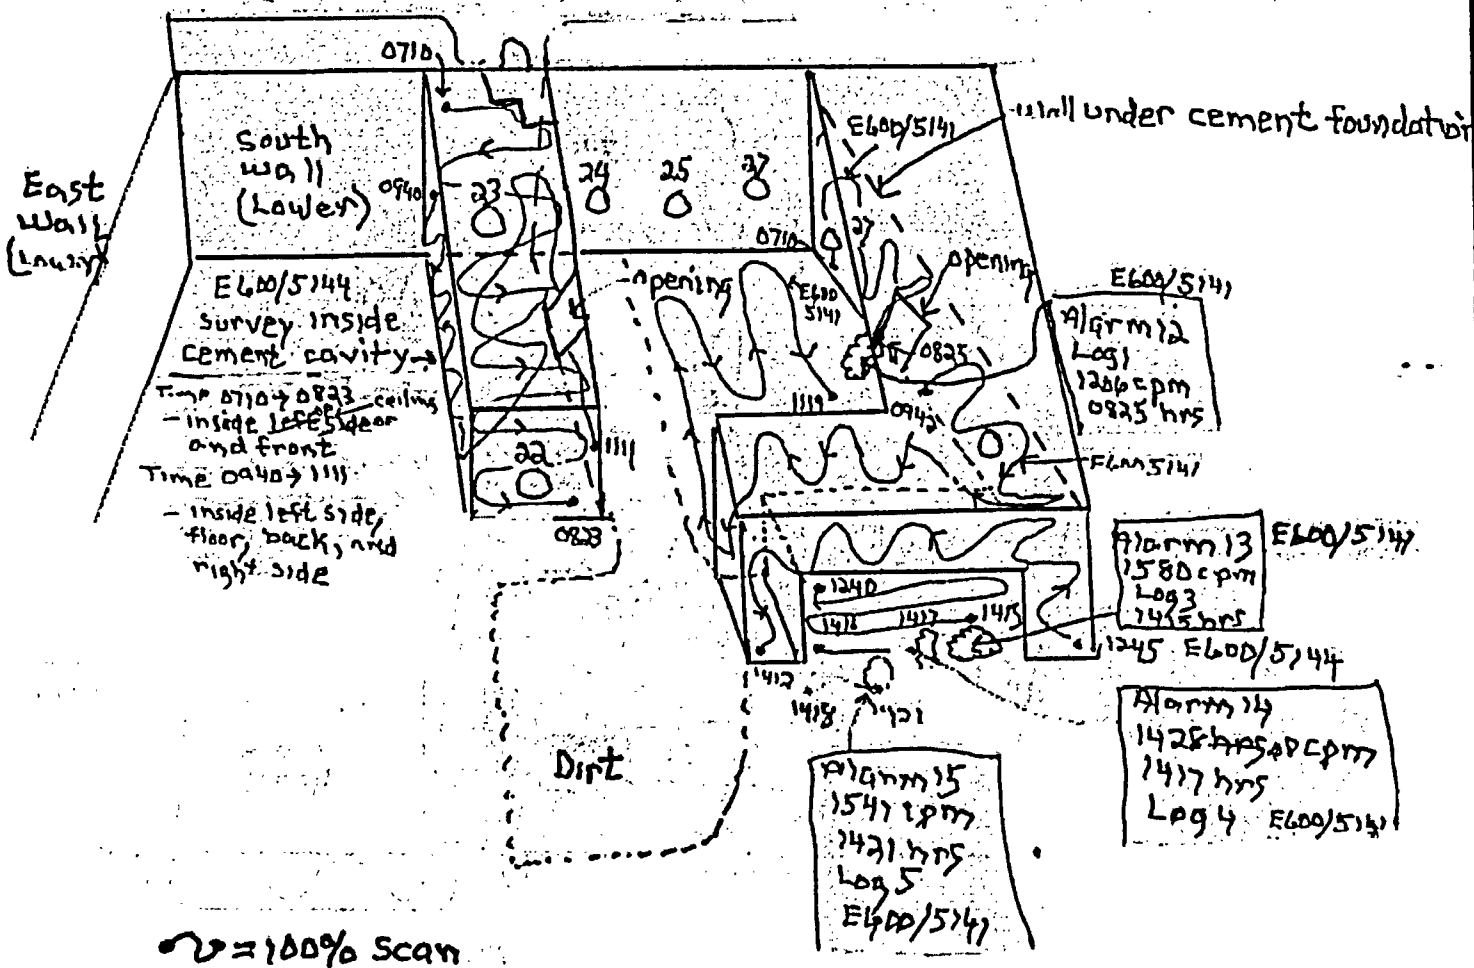 0710
South
wall
(Lower)
East
Wall
0940
23
24
25
27
E600/5141
wall under cement foundation
0710
27
opening
opening
E600
5141
0825
1119
0942
E600/5144
survey inside
cement cavity
Time 0710→0823
ceiling
- inside left side
and front
Time 0940→1111
- inside left side,
floor, back, and
right side
22
1111
0823
E600/5141
Alarm 12
Log 1
1206 cpm
0825 hrs
E600/5141
Alarm 13
1580 cpm
Log 3
1415 hrs
E600/5141
1240
1418
1417
1415
1245 E600/5144
1412
1418
1421
Alarm 14
1428 cpm
1417 hrs
Log 4 E600/5141
Dirt
Alarm 15
1541 cpm
1421 hrs
Log 5
E600/5141
= 100% Scan